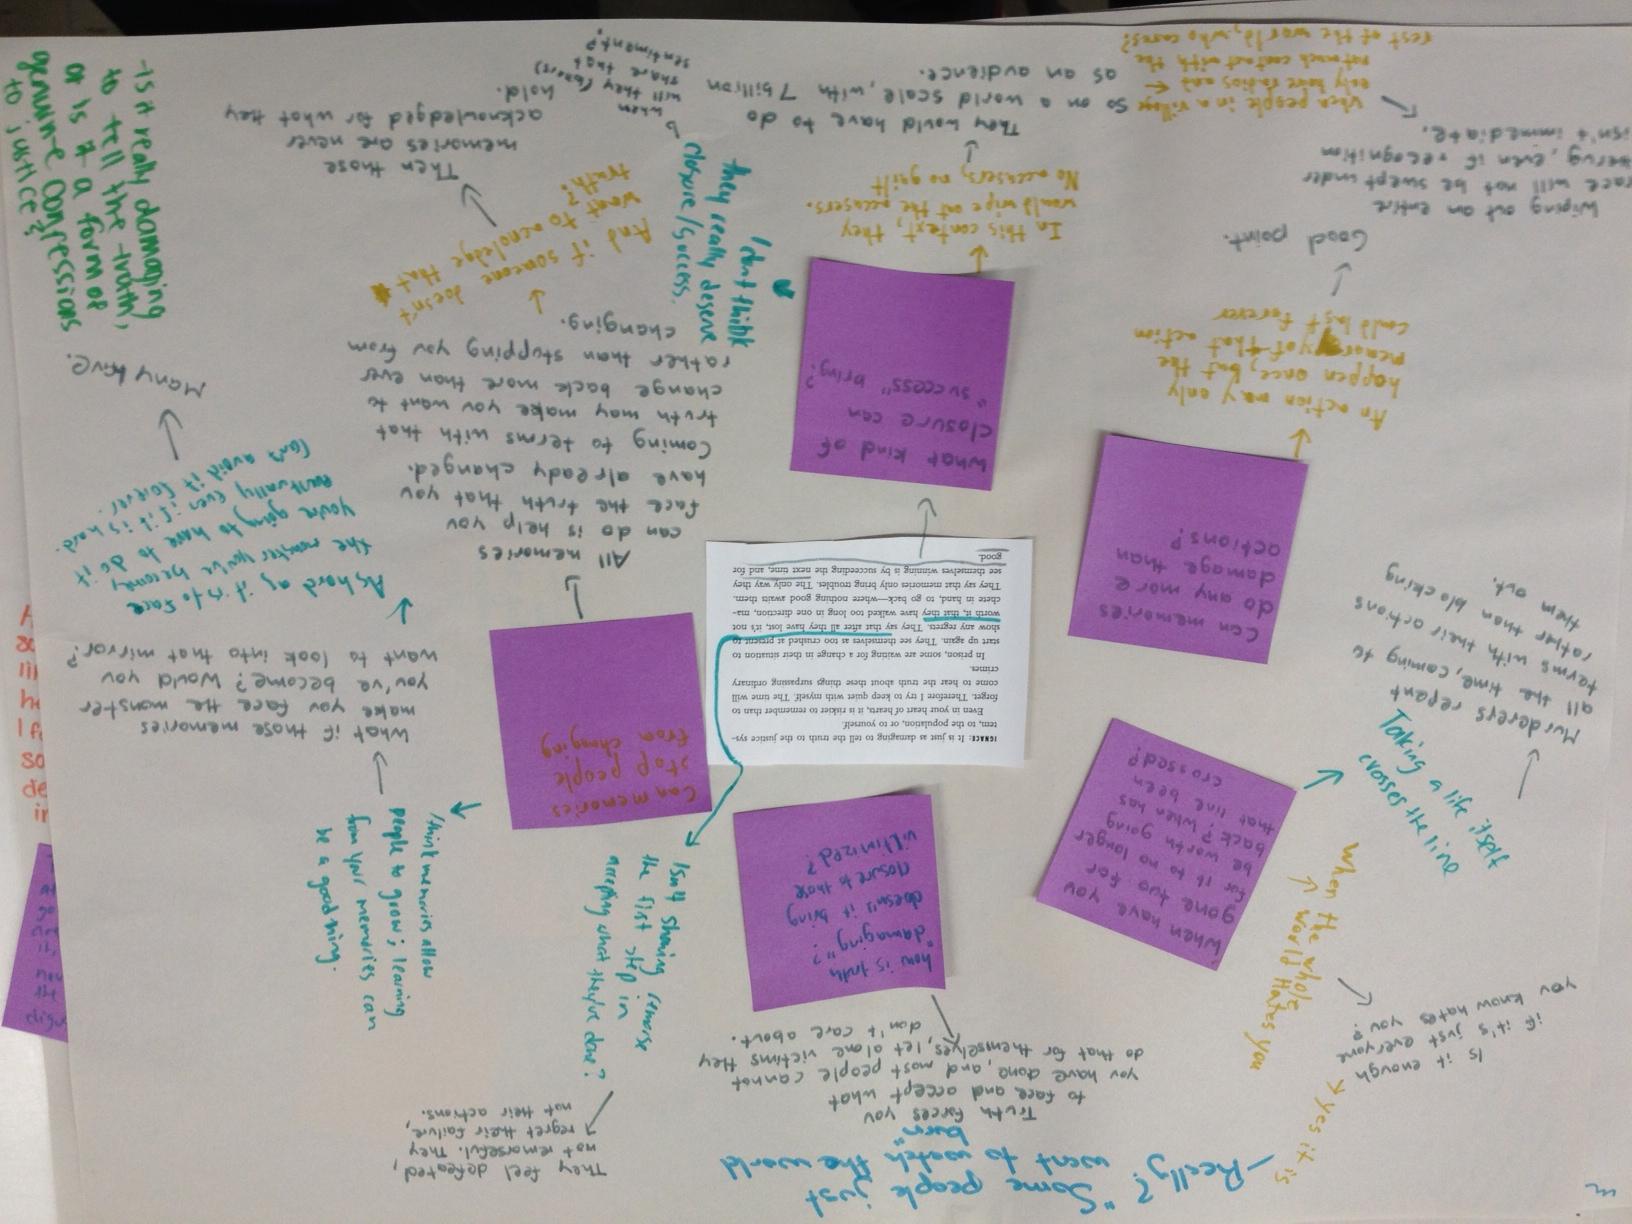 IGNACE: It is just as damaging to tell the truth to the justice sys-
tem, to the population, or to yourself.
Even in your heart of hearts, it is riskier to remember than to
forget. Therefore I try to keep quiet with myself. The time will
come to hear the truth about these things surpassing ordinary
crimes.
In prison, some are waiting for a change in their situation to
start up again. They see themselves as too crushed at present to
show any regrets. They say that after all they have lost, it's not
worth it, that they have walked too long in one direction, ma-
chete in hand, to go back—where nothing good awaits them.
They say that memories only bring troubles. The only way they
see themselves winning is by succeeding the next time, and for
good.
Can memories
stop people
from changing
how is truth
"damaging"?
doesn't it bring
closure to those
vitimized?
When have you
gone two for
for it to no longer
be worth going
back? When has
that line been
crossed?
Can memories
do any more
damage than
actions?
What kind of
closure can
"success" bring?
-Really? "Some people just
want to watch the world
burn"
Truth forces you
to face and accept what
you have done, and most people cannot
do that for themselves, let alone victims they
don't care about.
They feel defeated,
not remorseful. They
regret their failure,
not their actions.
Isn't showing remorse
the first step in
accepting what they've done?
I think memories allow
people to grow; learning
from your memories can
be a good thing.
What if those memories
make you face the monster
you've become? Would you
want to look into that mirror?
As hard as it is to face
the monster you've become
you're going to have to do it
eventually even if it is hard.
Can't avoid it forever.
Many have.
-Is it really damaging
to tell the truth,
or is it a form of
genuine confessions
to justice?
All memories
can do is help you
face the truth that you
have already changed.
Coming to terms with that
truth may make you want to
change back more than ever
rather than stopping you from
changing.
And if someone doesn't
want to acnoledge that
truth?
Then those
memories are never
acknowledged for what they
hold.
I don't think
they really deserve
closure/success.
when
will they
share that
sentiment?
In this context, they
would wipe out the accusers.
No accusers, no guilt
They would have to do
so on a world scale, with 7 billion
as an audience.
when people in a village
only have radios and
not much contact with the
rest of the world, who cares?
Wiping out an entire
race will not be swept under
rug, even if recognition
isn't immediate.
Good point.
An action may only
happen once, but the
memory of that action
could last forever
Murderers repent
all the time, coming to
terms with their actions
rather than blocking
them out.
Taking a life itself
crosses the line
When the whole
world Hates you
Is it enough
if it's just everyone
you know hates you?
yes it is